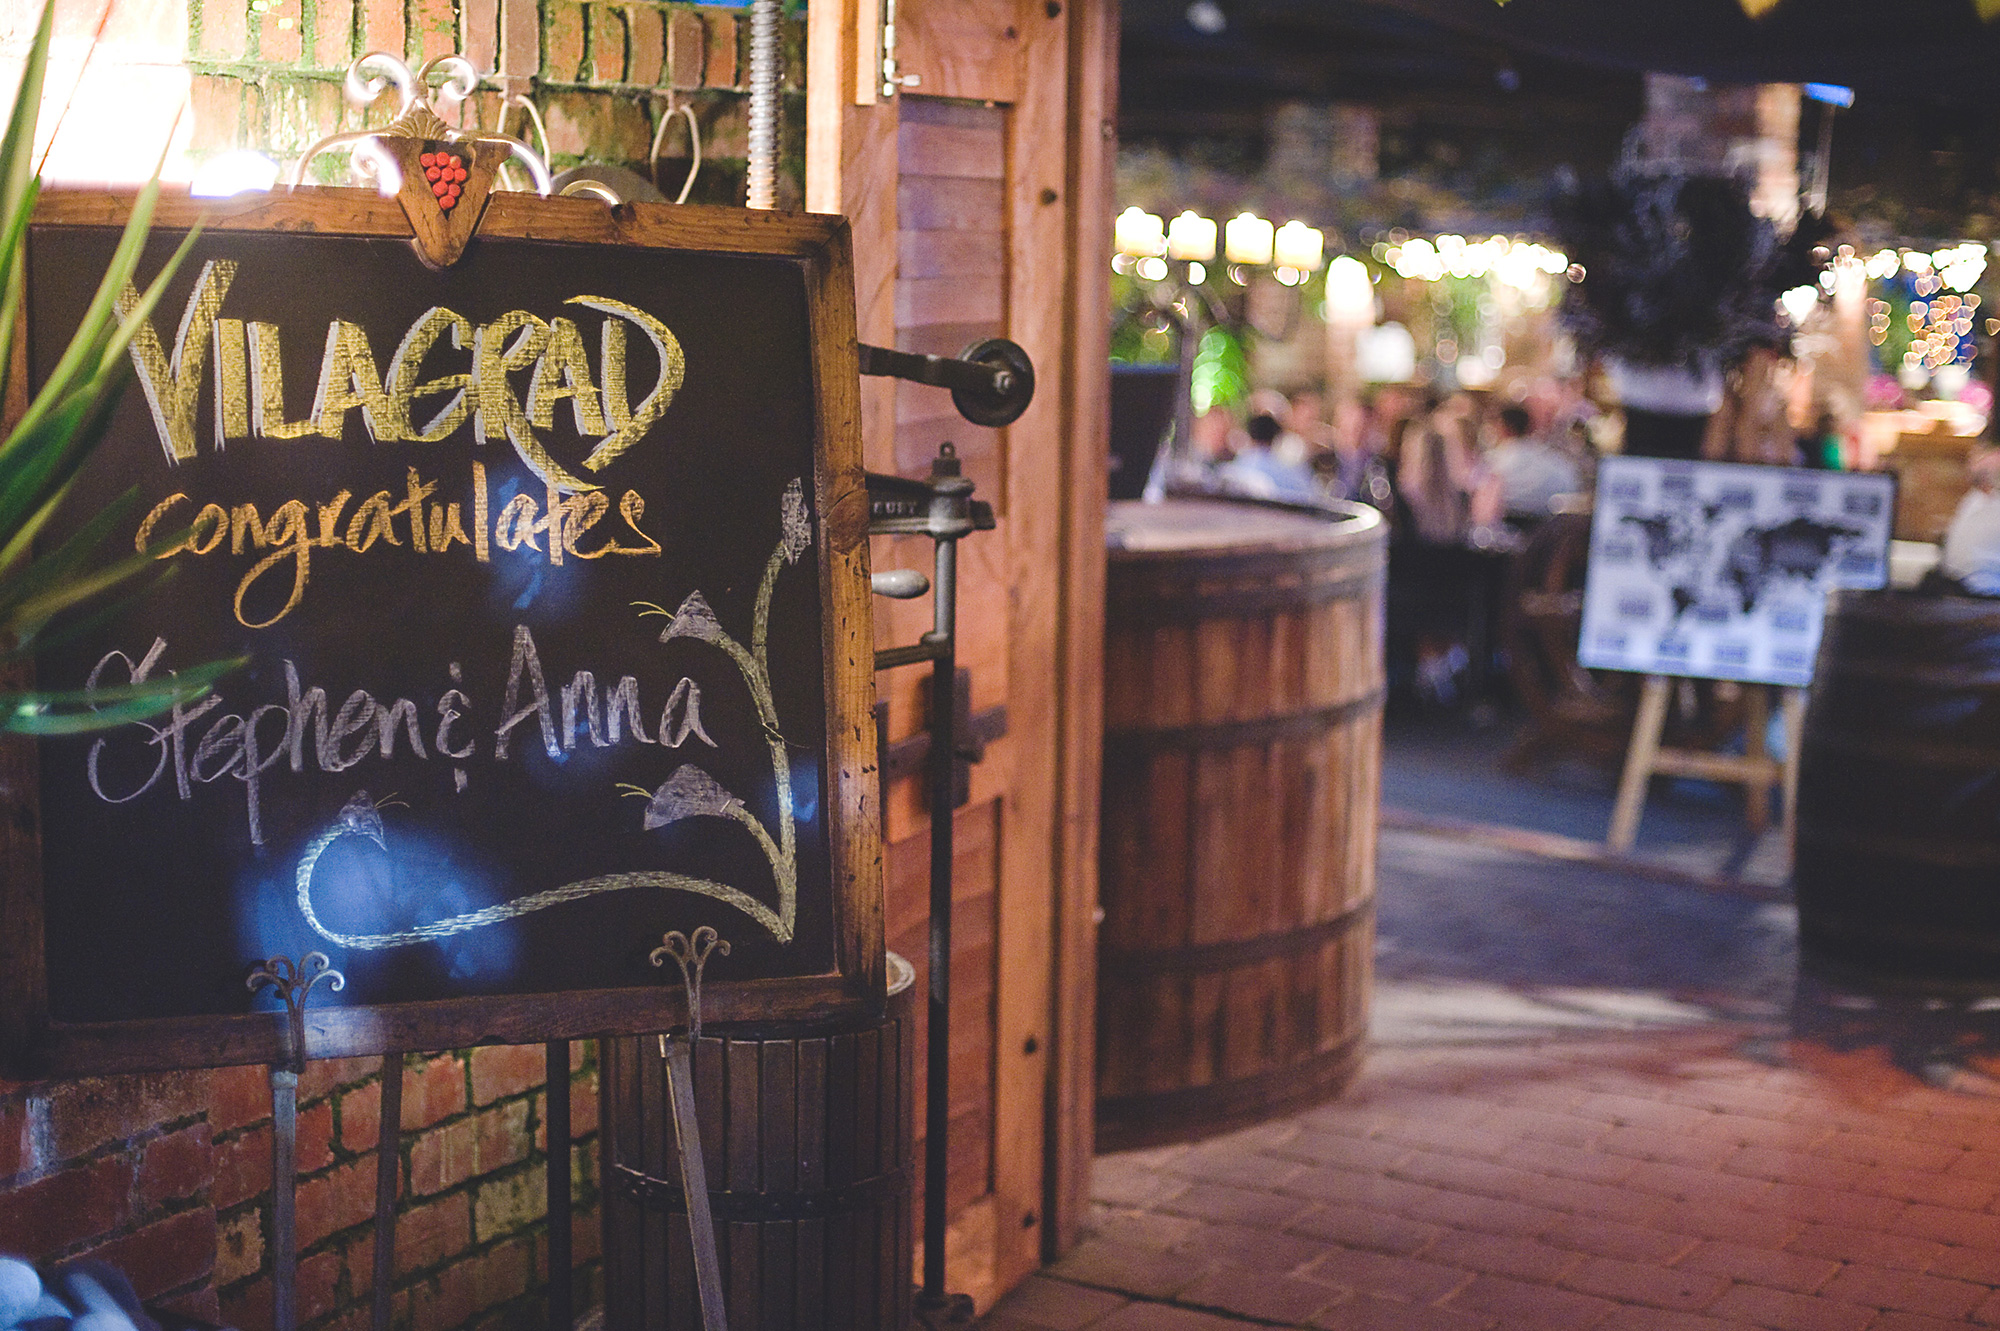 VILAGRAD
congratulates
Stephen & Anna